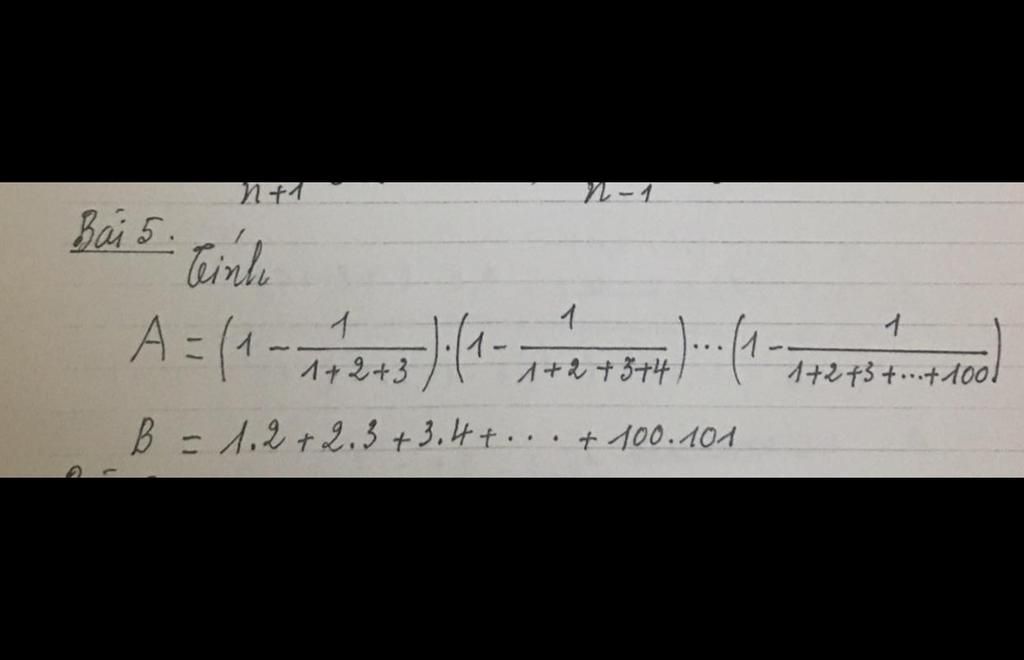 n+1 n-1
Bài 5.
Tính
A = (1 - 1/(1+2+3)) . (1 - 1/(1+2+3+4)) ... (1 - 1/(1+2+3+...+100))
B = 1.2 + 2.3 + 3.4 + .... + 100.101